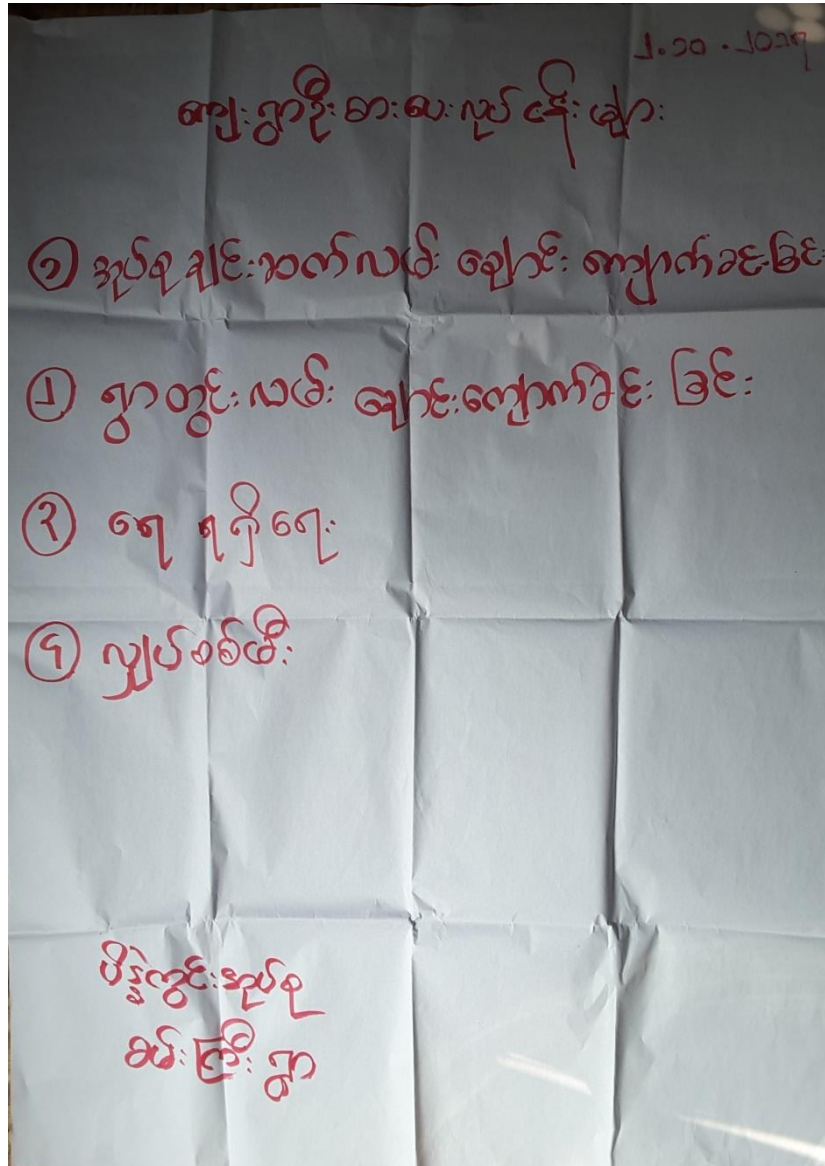 ၂.၁၀.၂၀၁၇
ကျေးရွာဦးစားပေးလုပ်ငန်းများ
၁ အုပ်စုချင်းဆက်လမ်း ချောင်း ကျောက်ခင်းခြင်း
၂ ရွာတွင်းလမ်း ချောင်းကျောက်ခင်း ခြင်း
၃ ရေ ရရှိရေး
၄ လျှပ်စစ်မီး
ပိန္နဲကွင်းအုပ်စု
စမ်းကြီးရွာ